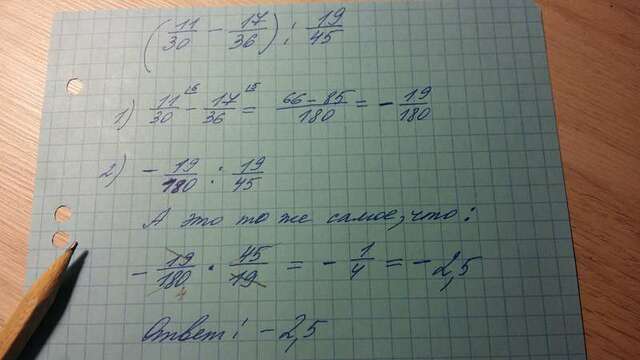 (11/30 - 17/36) : 19/45
1) 11/30 ¹⁵ - 17/36 ¹⁵ = 66-85/180 = - 19/180
2) - 19/180 : 19/45
А это то же самое, что:
- 19/180 4 · 45/19 = - 1/4 = - 2,5
Ответ: - 2,5